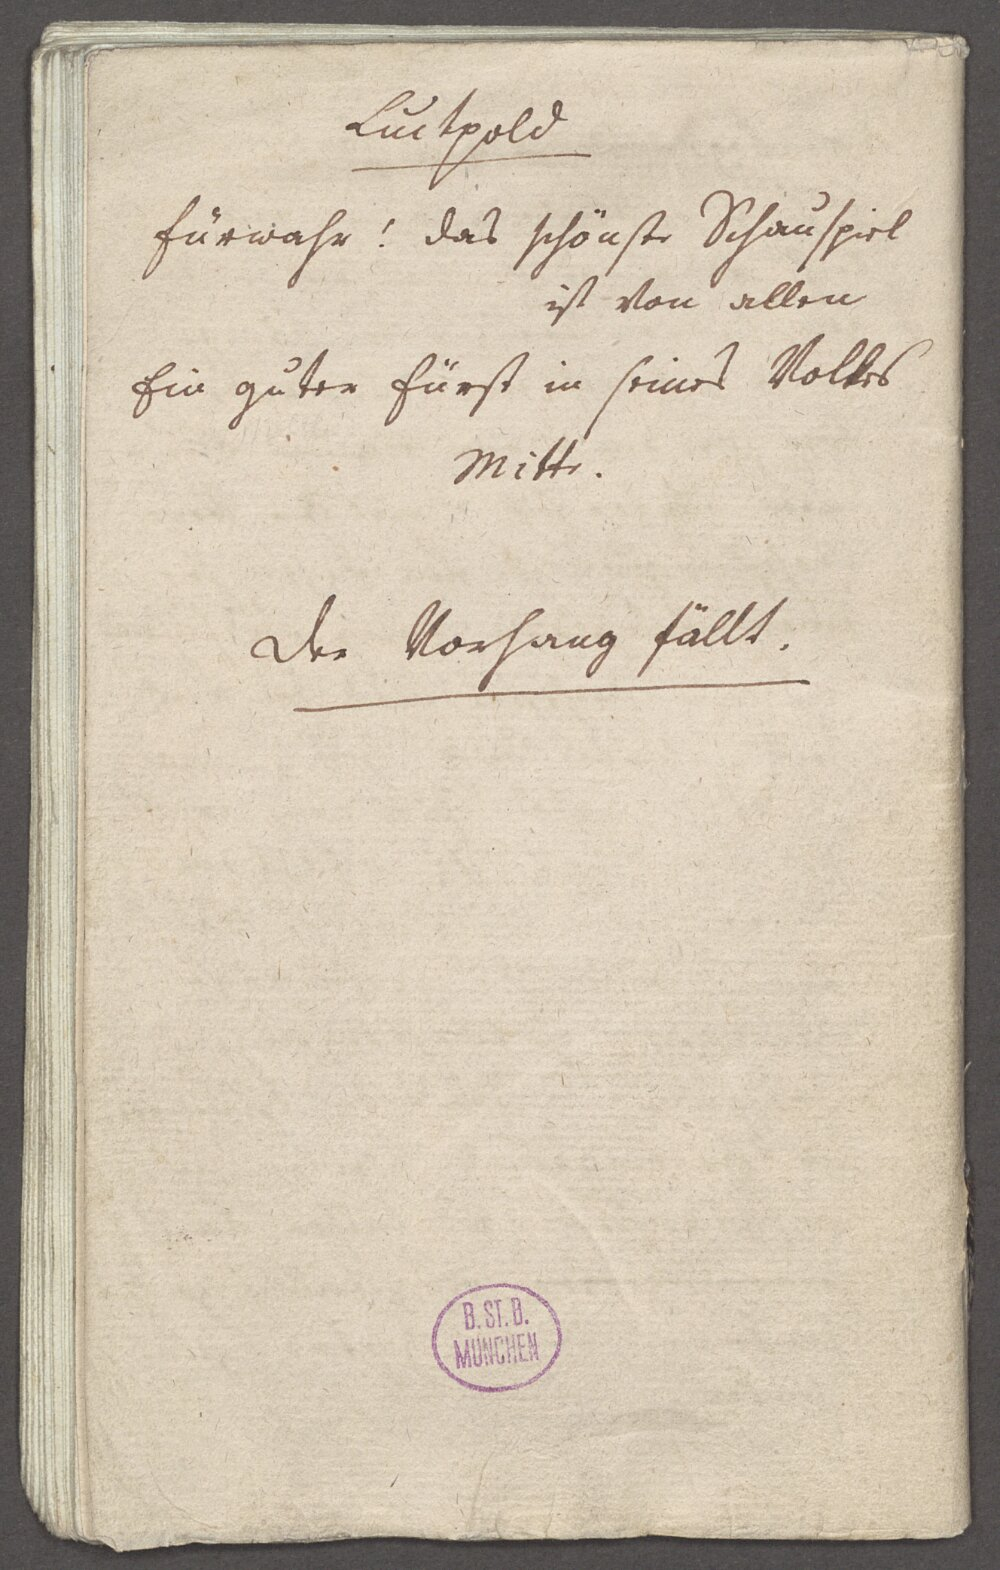 Luitpold
Fürwahr! das schönste Schauspiel
ist von allen
Ein guter Fürst in seines Volkes
Mitte.
Der Vorhang fällt.
B. ST. B.
MÜNCHEN